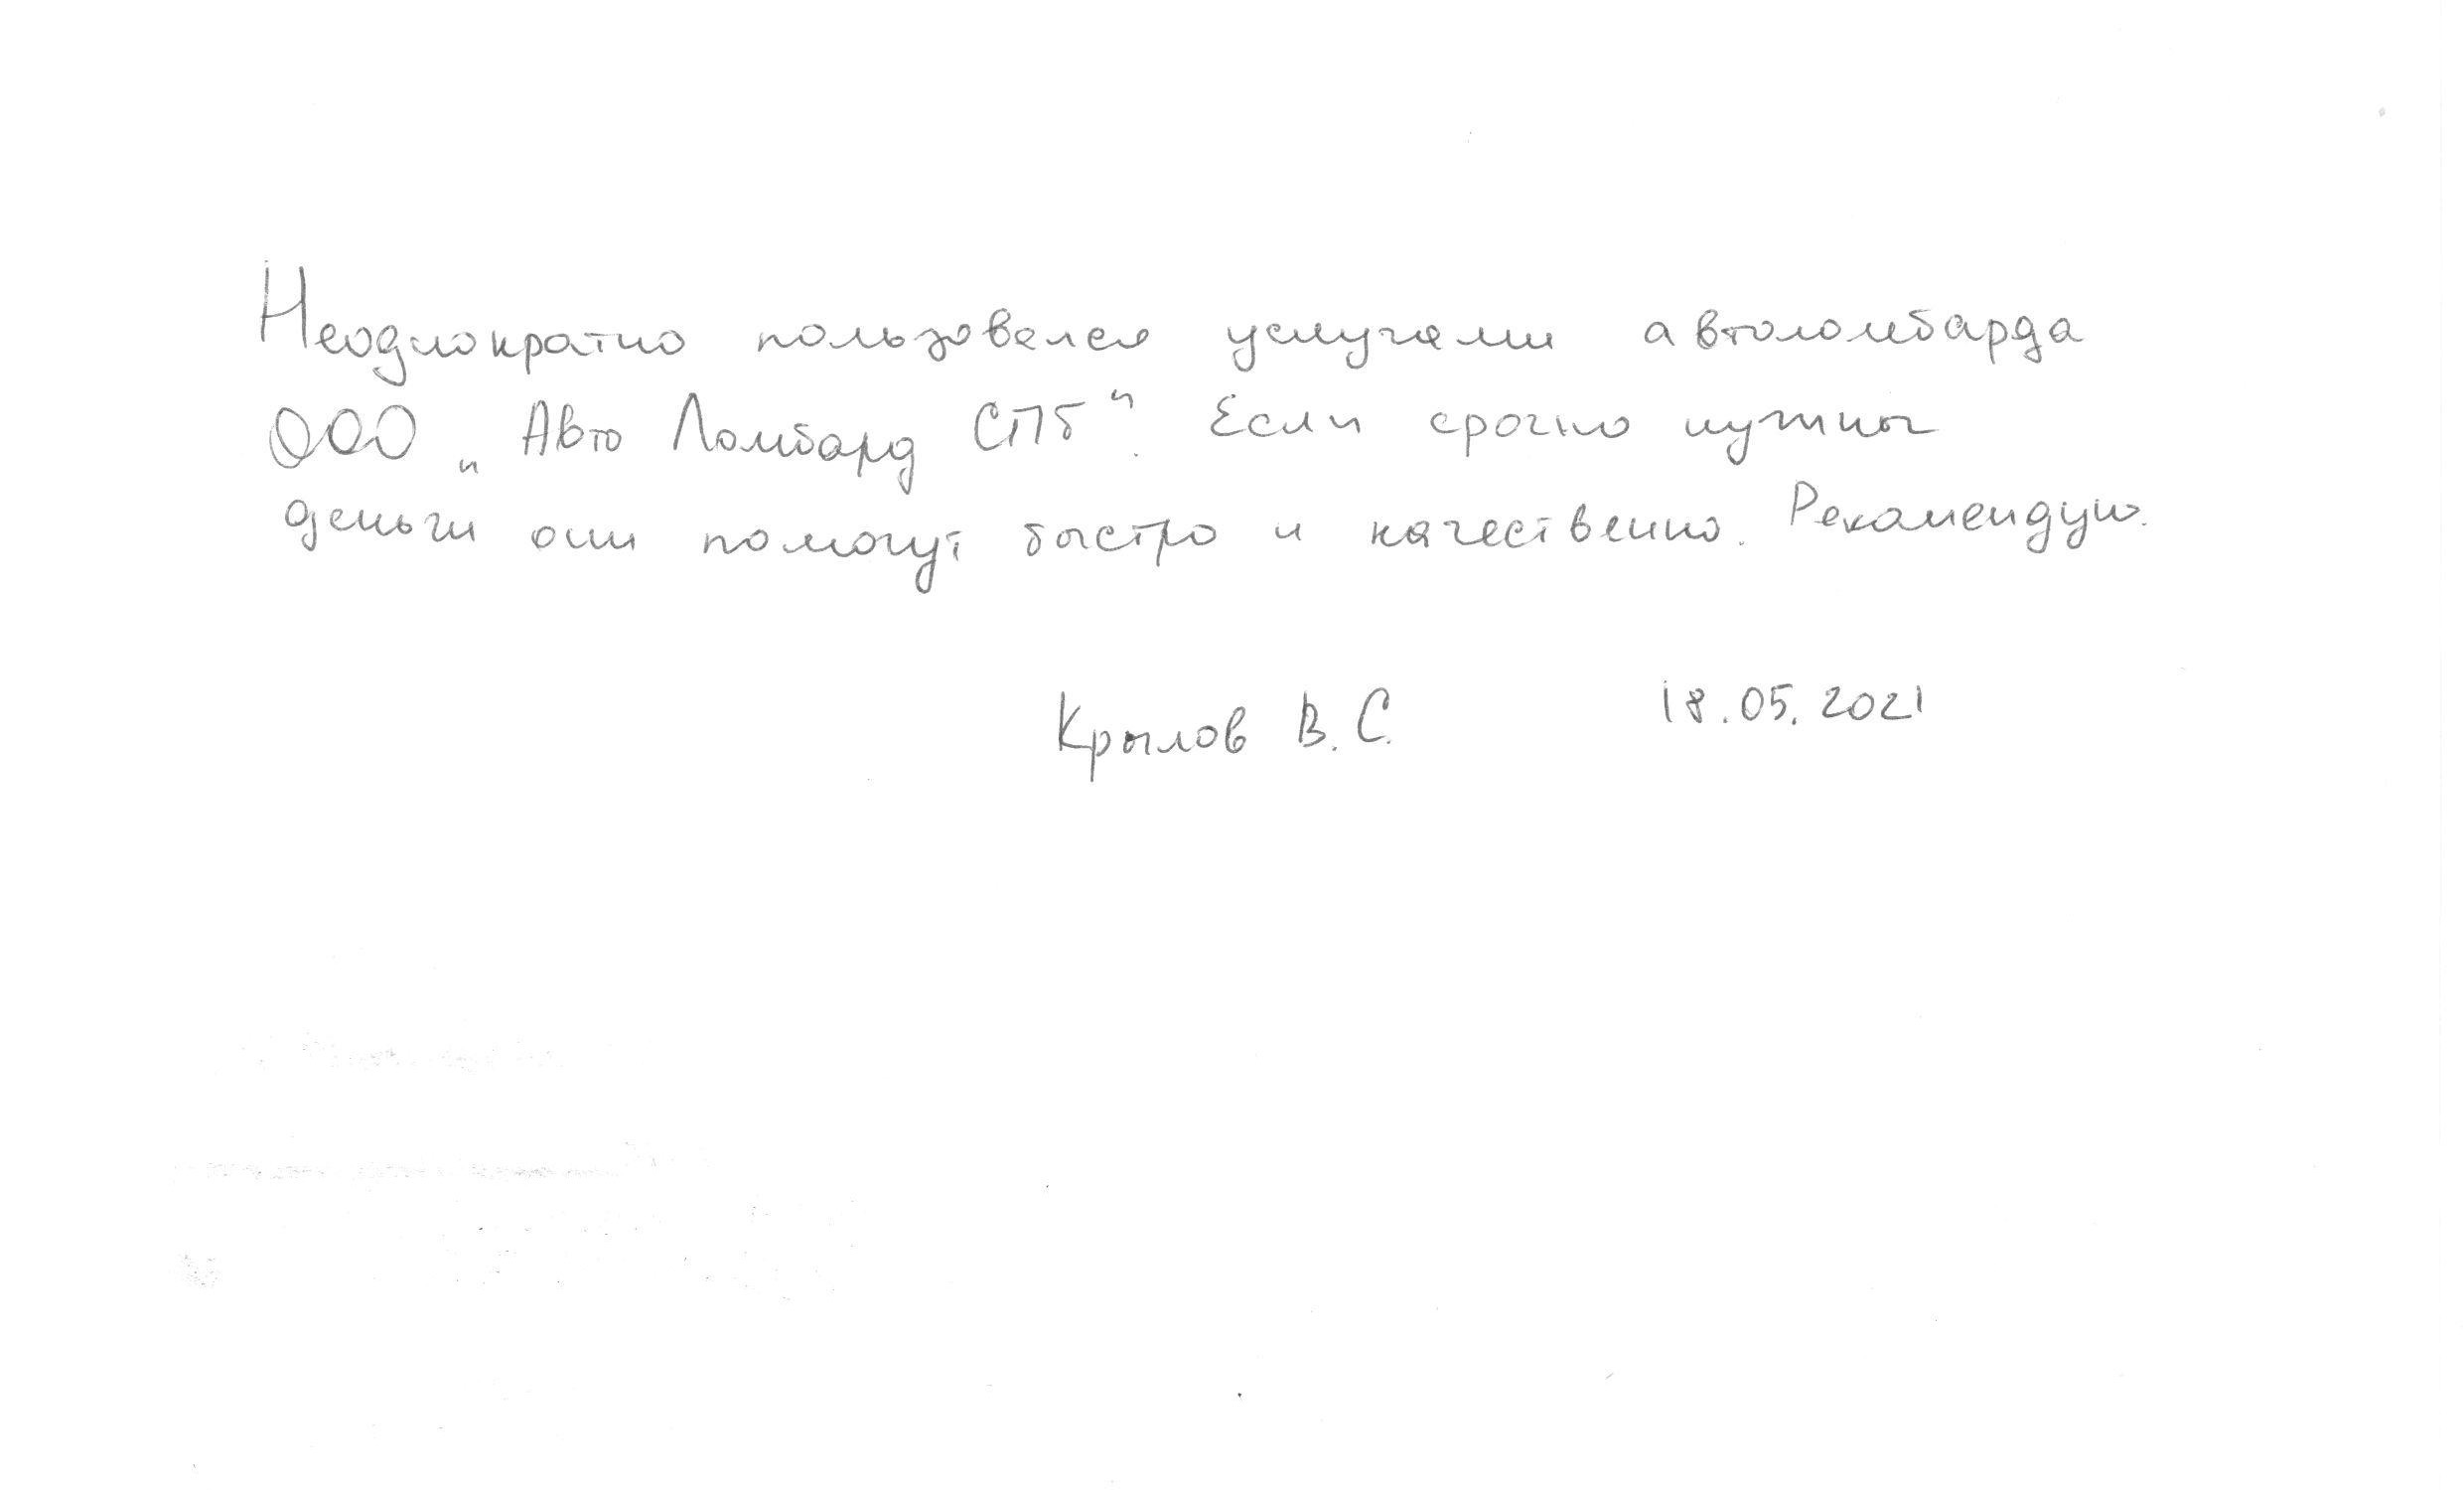 Неоднократно пользовался услугами автоломбарда
ООО „Авто Ломбард СПб". Если срочно нужны
деньги они помогут быстро и качественно. Рекомендую.
Крылов В.С. 18.05.2021